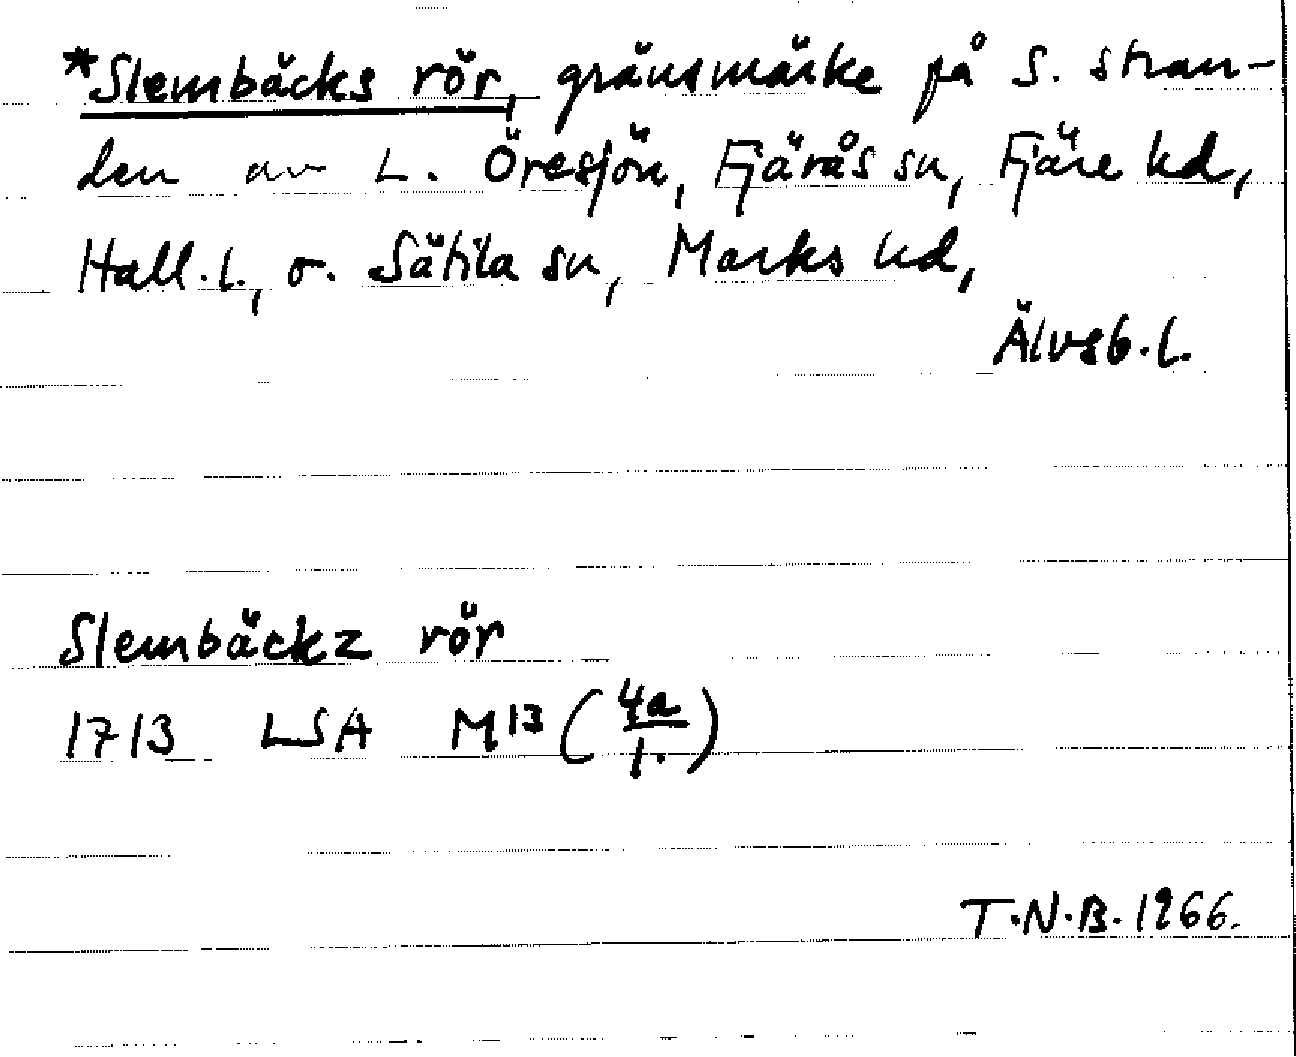 *Slembäcks rör, gränsmärke på S. stran-
den av L. Öresjön, Fjärås sn, Fjäre hd,
Hall. l., o. Sätila sn, Marks hd,
Älvsb. l.
Slembäckz rör
1713 LSA M13 (4a/1.)
T.N.B. 1966.